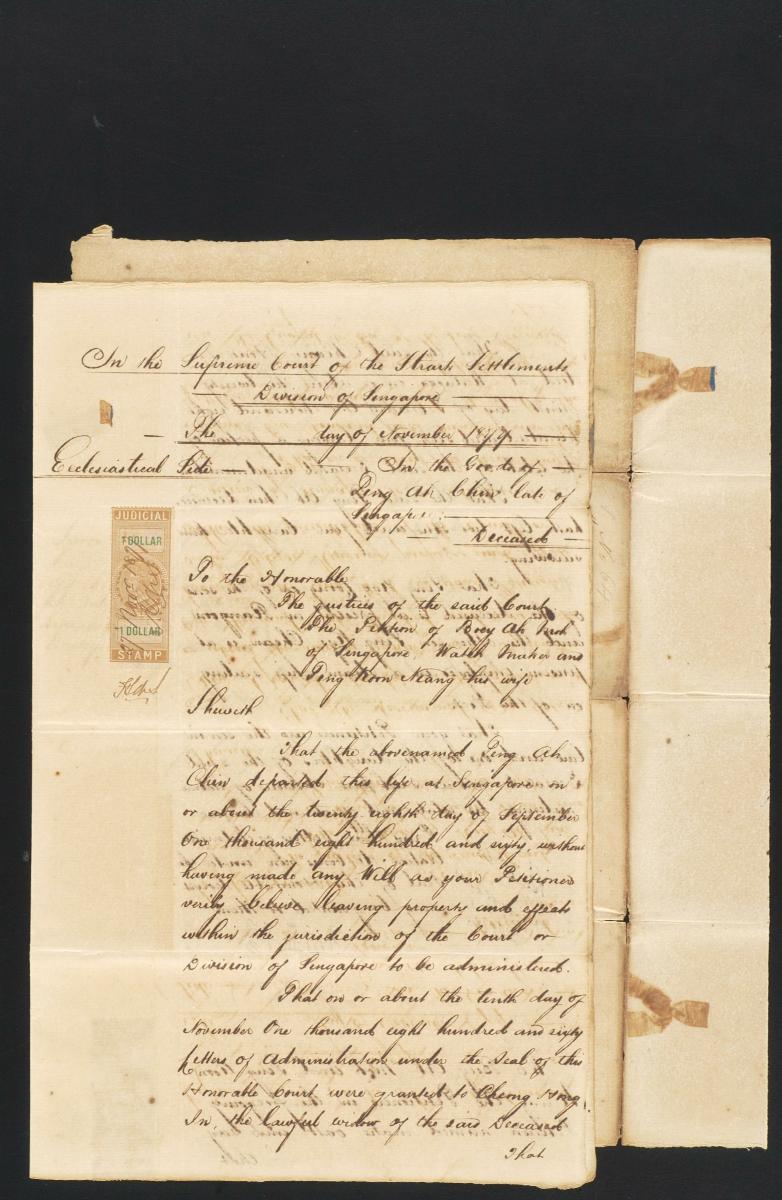 In the Supreme Court of the Straits Settlements
Division of Singapore
The day of November 1879
Ecclesiastical Side In the Goods of
Peng Ah Chin late of
Singapore
Deceased
JUDICIAL
1 DOLLAR
1 DOLLAR
STAMP
To the Honorable
The justices of the said Court
The Petition of Booy Ah
of Singapore Watch Maker and
Peng Koon Neang his wife
Sheweth
That the abovenamed Peng Ah
Chin departed this life at Singapore on
or about the twenty eighth day of September
One thousand eight hundred and sixty, without
having made any Will as your Petitioners
verily believe leaving property and effects
within the jurisdiction of the Court or
Division of Singapore to be administered.
That on or about the tenth day of
November One thousand eight hundred and sixty
Letters of Administration under the Seal of this
Honorable Court were granted to Cheong Hong
In, the lawful widow of the said Deceased
That